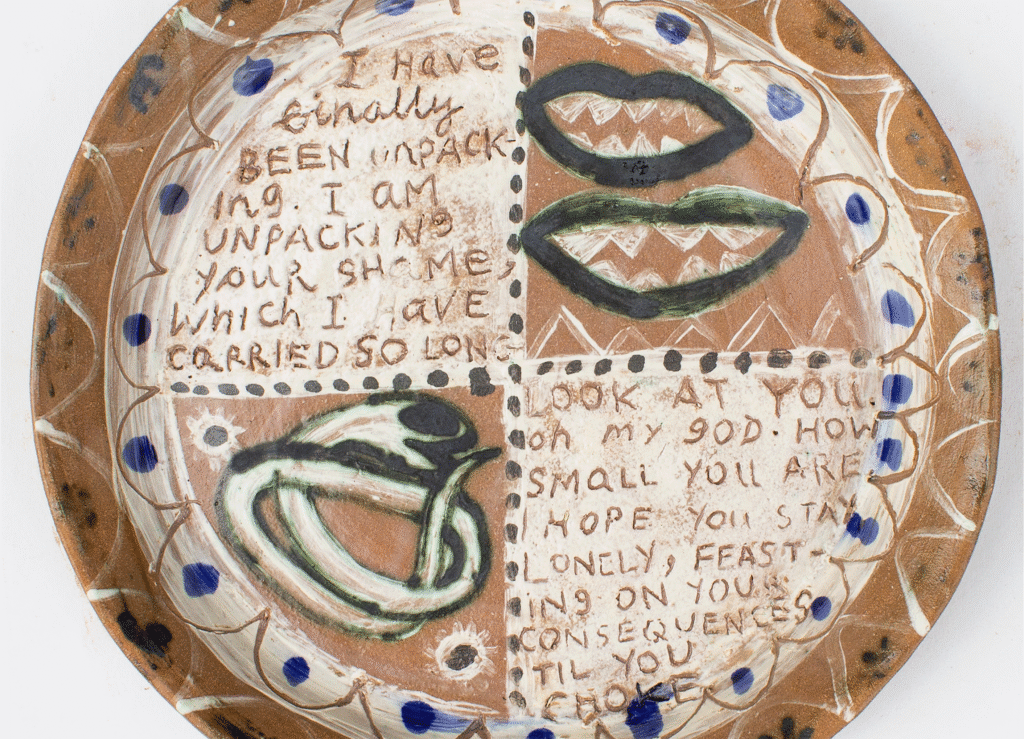 I HavE
finally
BEEN unPACK-
ing. I AM
UNPACKING
YOUR SHaME,
Which I HAVE
CARRIED SO LONG
LOOK AT YOU.
oh my gOD. HOW
SMaLL YOU ARE
I HOPE YOU STAY
LONELY, FEAST-
ING ON YOUR
CONSEQUENCES
TIL YOU
CHOKE